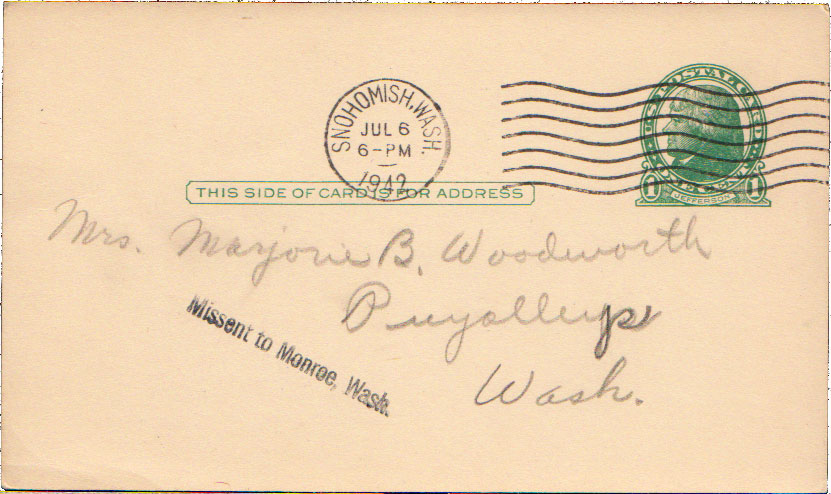 U.S. POSTAL CARD
ONE CENT
1 JEFFERSON 1
SNOHOMISH, WASH.
JUL 6
6-PM
1942
THIS SIDE OF CARD IS FOR ADDRESS
Mrs. Marjorie B. Woodworth
Puyallup
Wash.
Missent to Monroe, Wash.